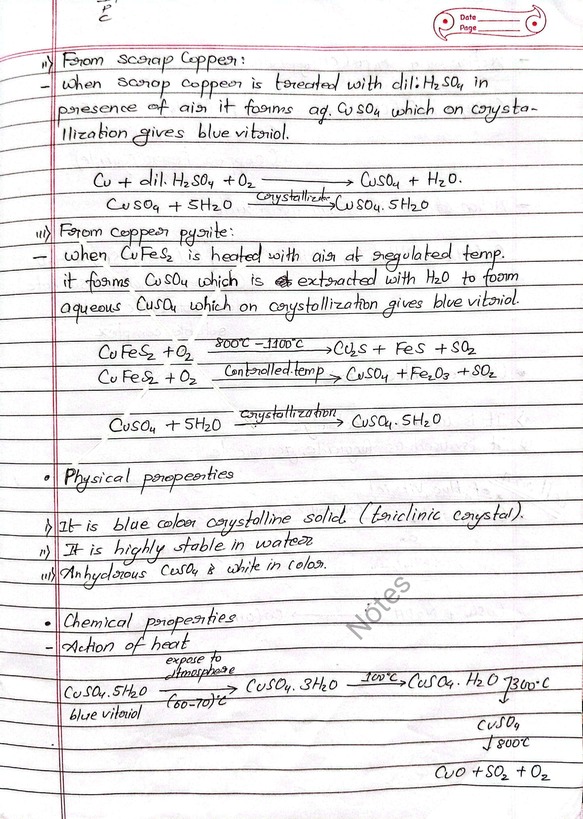 P
C
Date
Page
ii) From scrap Copper:
- when scrap copper is treated with dil. H₂SO₄ in
presence of air it forms aq. CuSO₄ which on crysta-
llization gives blue vitriol.
Cu + dil. H₂SO₄ + O₂ ⟶ CuSO₄ + H₂O.
CuSO₄ + 5H₂O —crystallizatn→ CuSO₄.5H₂O
iii) From copper pyrite:
- when CuFeS₂ is heated with air at regulated temp.
it forms CuSO₄ which is extracted with H₂O to form
aqueous CuSO₄ which on crystallization gives blue vitriol.
CuFeS₂ + O₂ —800°C - 1100°C→ Cu₂S + FeS + SO₂
CuFeS₂ + O₂ —Controlled.temp→ CuSO₄ + Fe₂O₃ + SO₂
CuSO₄ + 5H₂O —crystallization→ CuSO₄.5H₂O
• Physical properties
i) It is blue color crystalline solid. (triclinic crystal).
ii) It is highly stable in water
iii) Anhydrous CuSO₄ is white in color.
Notes
• Chemical properties
- Action of heat
expose to
atmosphere
CuSO₄.5H₂O —(60-70)°C→ CuSO₄.3H₂O —100°C→ CuSO₄.H₂O ↓300°C
blue vitriol
CuSO₄
↓ 800°C
CuO + SO₂ + O₂